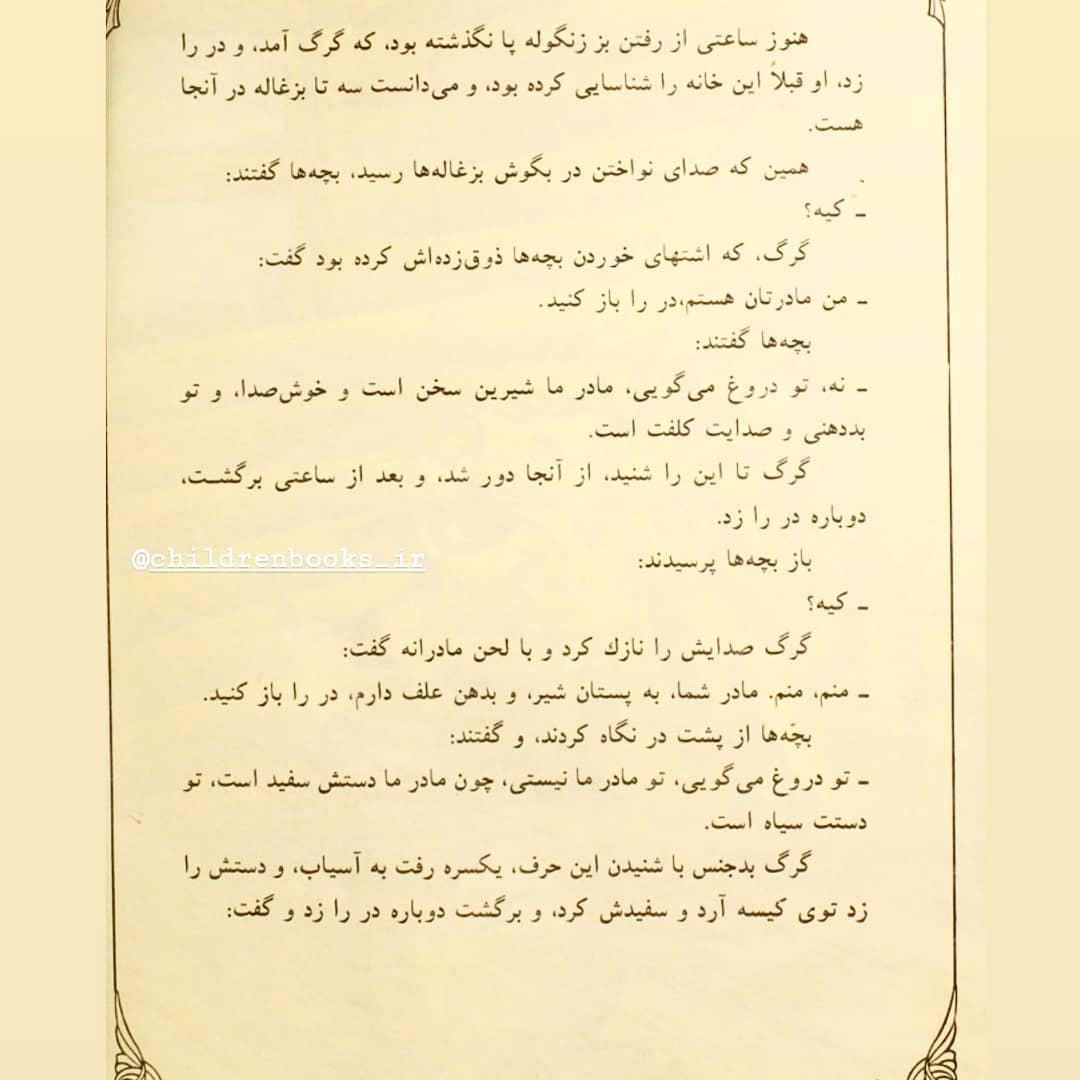 هنوز ساعتی از رفتن بز زنگوله پا نگذشته بود، که گرگ آمد، و در را
زد، او قبلاً این خانه را شناسایی کرده بود، و می‌دانست سه تا بزغاله در آنجا
هست.
همین که صدای نواختن در بگوش بزغاله‌ها رسید، بچه‌ها گفتند:
ـ کیه؟
گرگ، که اشتهای خوردن بچه‌ها ذوق‌زده‌اش کرده بود گفت:
ـ من مادرتان هستم،در را باز کنید.
بچه‌ها گفتند:
ـ نه، تو دروغ می‌گویی، مادر ما شیرین سخن است و خوش‌صدا، و تو
بددهنی و صدایت کلفت است.
گرگ تا این را شنید، از آنجا دور شد، و بعد از ساعتی برگشت،
دوباره در را زد.
باز بچه‌ها پرسیدند:
@childrenbooks_ir
ـ کیه؟
گرگ صدایش را نازك کرد و با لحن مادرانه گفت:
ـ منم، منم. مادر شما، به پستان شیر، و بدهن علف دارم، در را باز کنید.
بچّه‌ها از پشت در نگاه کردند، و گفتند:
ـ تو دروغ می‌گویی، تو مادر ما نیستی، چون مادر ما دستش سفید است، تو
دستت سیاه است.
گرگ بدجنس با شنیدن این حرف، یکسره رفت به آسیاب، و دستش را
زد توی کیسه آرد و سفیدش کرد، و برگشت دوباره در را زد و گفت: